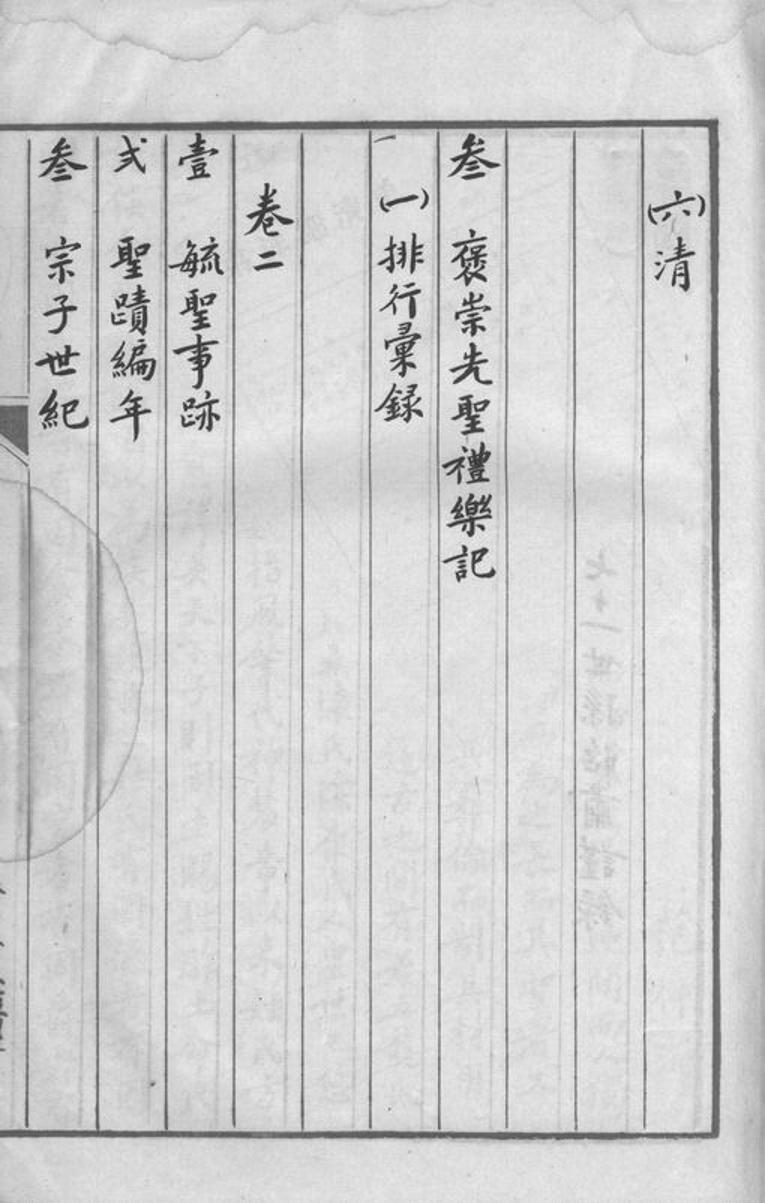 (六)清
叁　褒崇先聖禮樂記
(一)排行彙録
卷二
壹　毓聖事跡
弍　聖蹟編年
叁　宗子世紀